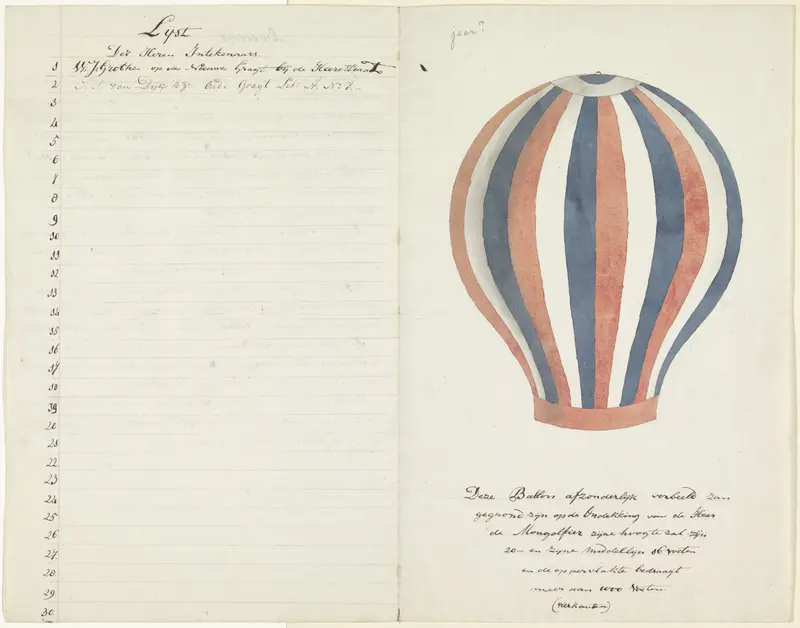 Lijst
Der Heren Intekenaars.
1 W. J. Grothen op de Nieuwe Gragt bij de Heere
2 van Oude Gragt Let. A. No 7.
3
4
5
6
7
8
9
10
11
12
13
14
15
16
17
18
19
20
21
22
23
24
25
26
27
28
29
30
jaar?
Deze Ballon afzonderlijk verbeeld zan
gegrond zijn op de Ontdekking van de Heer
de Mongolfier zijne hoogte zal zijn
20 en zijne middellijn 16 voeten
en de oppervlakte bedraagt
meer dan 1000 voeten
(vierkanten)